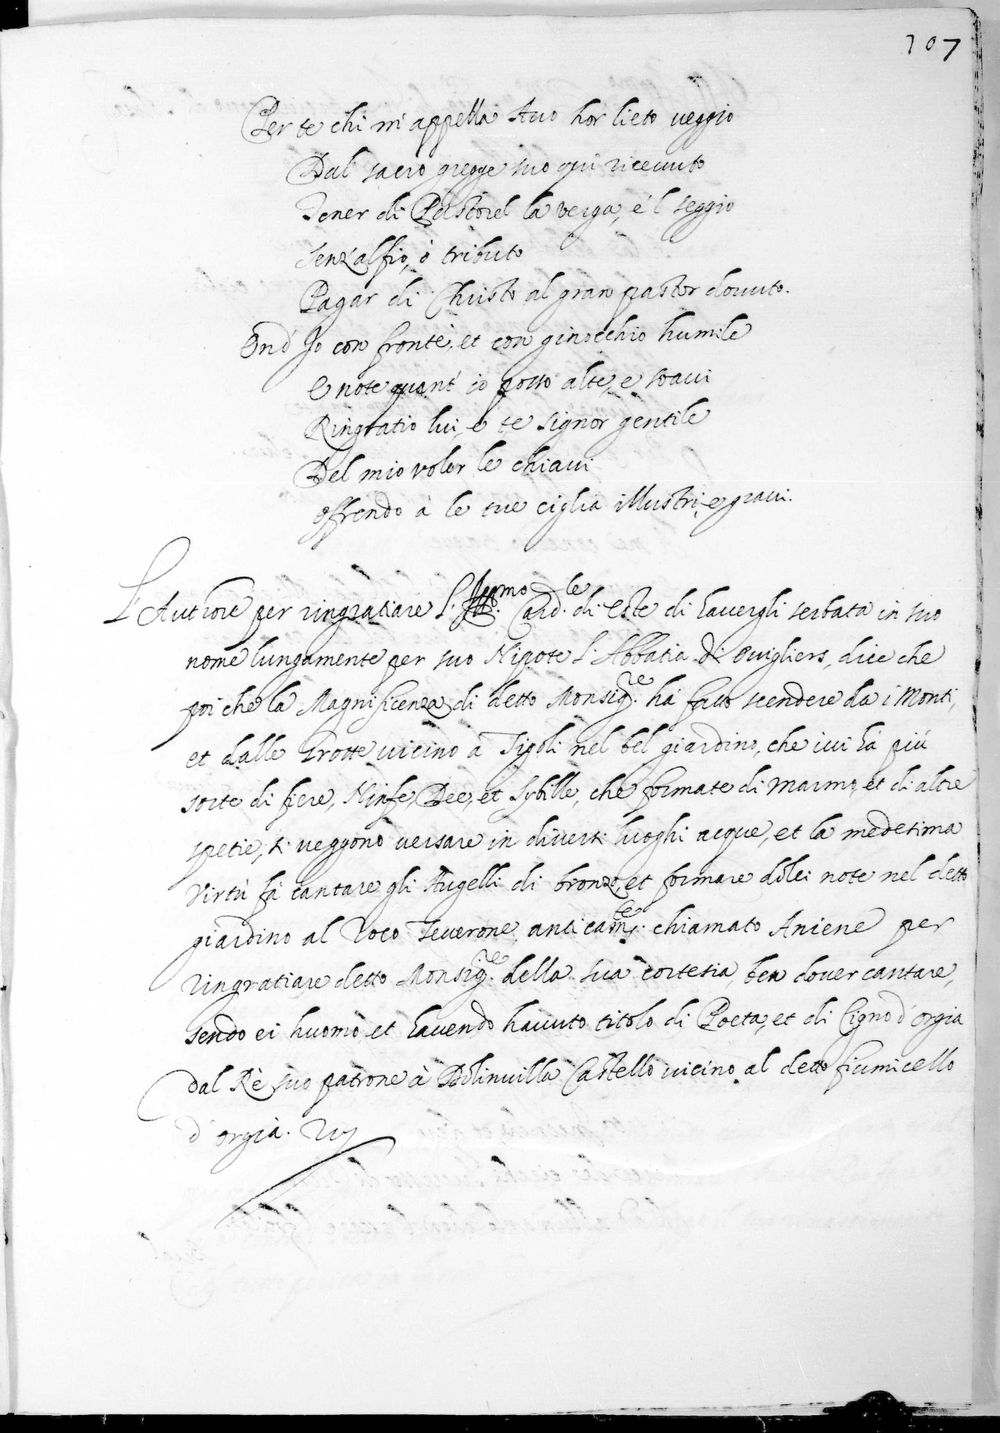 107
Per te chi m'appella Avo hor lieto veggio
Dal sacro gregge suo qui ricevuto
Tener di Pastorel la verga, e'l seggio
Senz'alfio, ò tributo
Pagar di Christo al gran pastor dovuto.
Ond' Io con fronte, et con ginocchio humile
E note quant' io posso alte, e soavi
Ringratio lui, e te signor gentile
Del mio voler le chiavi
offrendo à le tue ciglia illustri, e gravi.
L'Auttore per ringratiare l'Ill.mo Card.le di Este di havergli serbata in suo
nome lungamente per suo Nipote l'Abbatia di Ovigliers, dice che
poi che la Magnificenza di detto Monsig.re ha fatto scendere da i Monti,
et dalle Grotte vicino à Tigoli nel bel giardino, che ivi hà più
sorte di fiere, Ninfe, Dee, et Sybille, che formate di marmo, et di altre
spetie, si veggono versare in diversi luoghi acque, et la medesima
virtù fà cantare gli Augelli di bronzo, et formare dolci note nel detto
giardino al loco Teverone, anticam.te chiamato Aniene per
ringratiare detto Monsig.re della sua cortesia, ben dover cantare,
sendo ei huomo, et havendo havuto titolo di Poeta, et di Cigno d'orgia
dal Rè suo patrone à Dolinvilla Castello vicino al detto fiumicello
d'orgia.